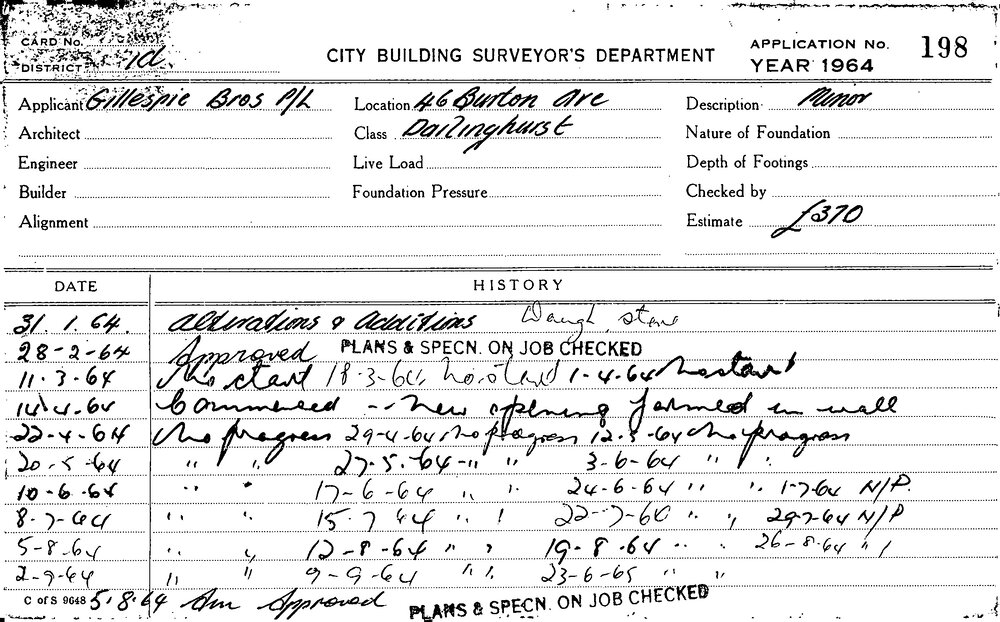 CARD No.
DISTRICT
CITY BUILDING SURVEYOR'S DEPARTMENT
APPLICATION No. 198
YEAR 1964
Applicant Gillespie Bros P/L Location 46 Burton Ave Description Minor
Architect Class Darlinghurst Nature of Foundation
Engineer Live Load Depth of Footings
Builder Foundation Pressure Checked by
Alignment Estimate £370
DATE HISTORY
31.1.64. Alterations & Additions
28-2-64 Approved PLANS & SPECN. ON JOB CHECKED
11.3.64 No start 18-3-64 No start 1-4-64 No start
14.4.64 Commenced -- New opening formed in wall
22-4-64 No progress 29-4-64 No progress 12-5-64 No progress
20-5-64 " " 27-5-64 " " 3-6-64 " "
10-6-64 " " 17-6-64 " " 24-6-64 " " 1-7-64 N/P.
8-7-64 " " 15-7-64 " " 22-7-64 " " 29-7-64 N/P
5-8-64 " " 12-8-64 " " 19-8-64 " " 26-8-64 " "
2-9-64 " " 9-9-64 " " 23-6-65 " "
C of S 9648 5.8.64 Am Approved PLANS & SPECN. ON JOB CHECKED